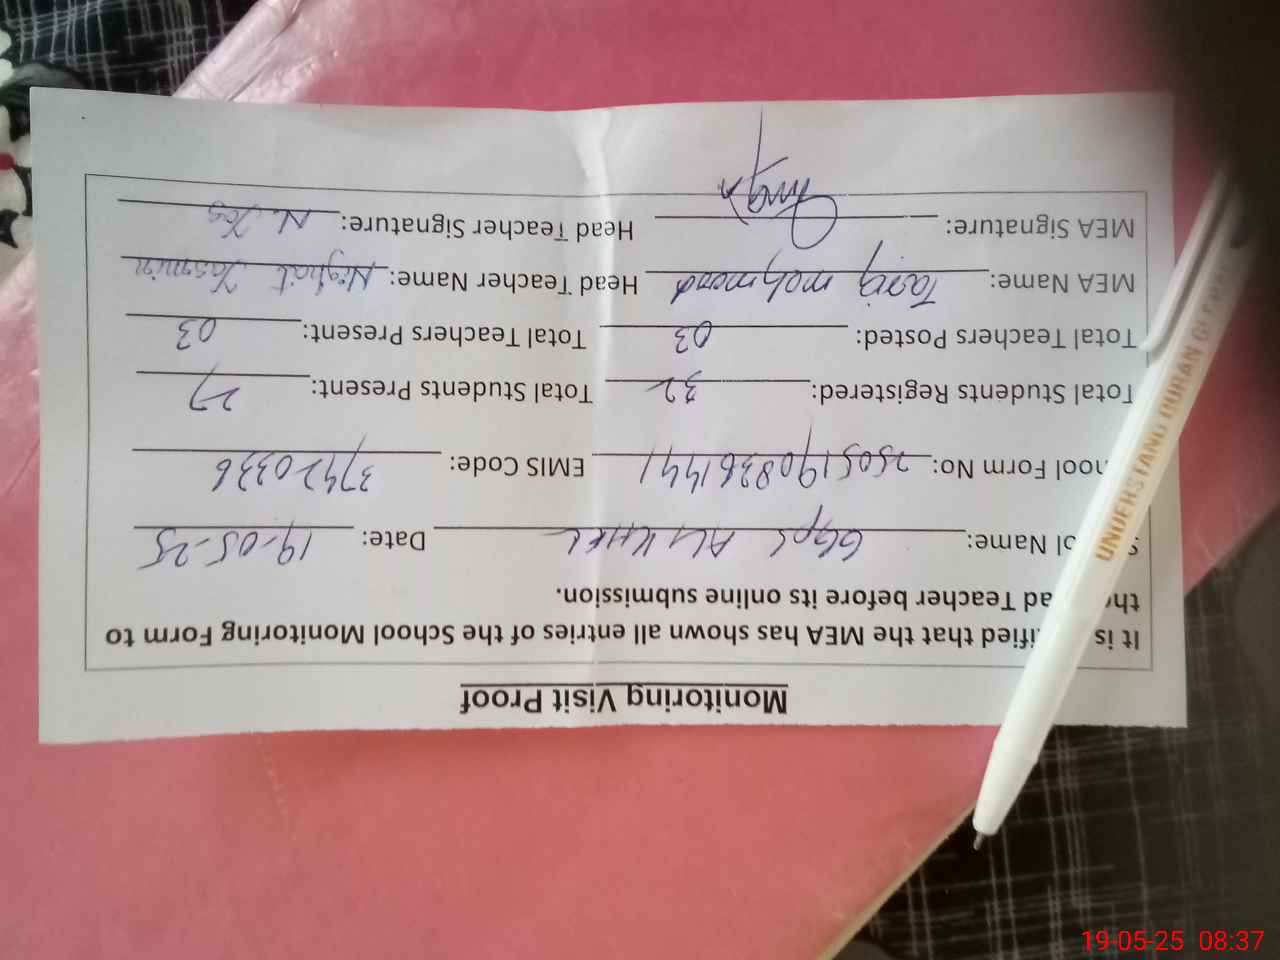 Monitoring Visit Proof
It is ified that the MEA has shown all entries of the School Monitoring Form to
the ad Teacher before its online submission.
ol Name: GGPS ALI KHEL Date: 19-05-25
hool Form No: 25051908361441 EMIS Code: 37420336
Total Students Registered: 32 Total Students Present: 27
Total Teachers Posted: 03 Total Teachers Present: 03
MEA Name: Tariq mahmood Head Teacher Name: Nighat Yasmin
MEA Signature: Head Teacher Signature: N. Yas
UNDERSTAND QURAN
19-05-25 08:37